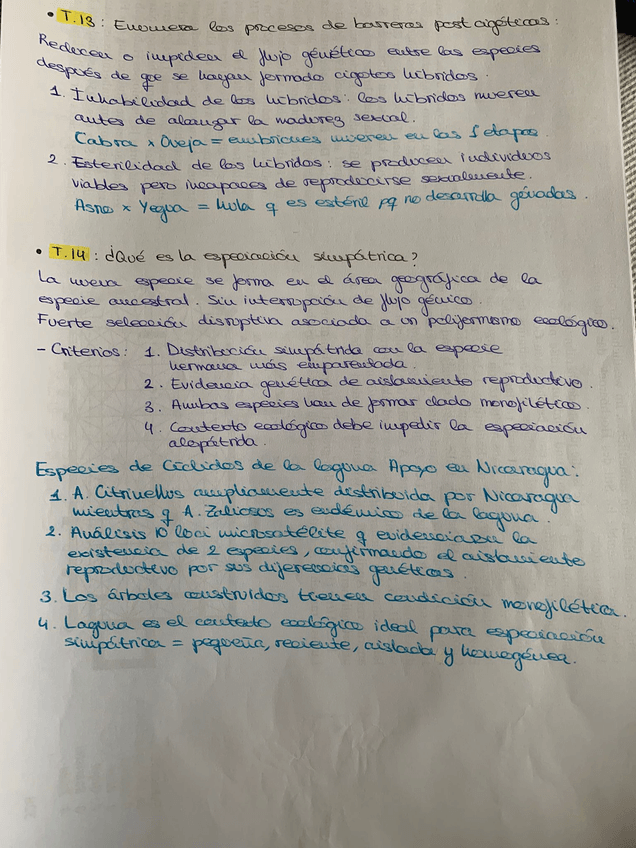 • T.13 : Enumera los procesos de barreras postcigóticas :
Reducen o impiden el flujo génético entre las especies
después de que se hayan formado cigotos híbridos.
1. Inhabilidad de los híbridos: los híbridos mueren
antes de alcanzar la madurez sexual.
Cabra x Oveja = embriones mueren en las 1ª etapas.
2. Esterilidad de los híbridos : se producen individuos
viables pero incapaces de reproducirse sexualmente.
Asno x Yegua = Mula q es estéril pq no desarrolla gónadas.
• T.14 : ¿Qué es la especiación simpátrica?
La nueva especie se forma en el área geográfica de la
especie ancestral. Sin interrupción de flujo génico.
Fuerte selección disruptiva asociada a un poliformismo ecológico.
- Criterios : 1. Distribución simpátrida con la especie
hermana más emparentada.
2. Evidencia genética de aislamiento reproductivo.
3. Ambas especies han de formar clado monofilético.
4. Contexto ecológico debe impedir la especiación
alopátrida.
Especies de Cíclidos de la laguna Apoyo en Nicaragua:
1. A. Citrinellus ampliamente distribuida por Nicaragua
mientras q A. Zaliosos es endémico de la laguna.
2. Análisis 10 loci microsatélite q evidenciaron la
existencia de 2 especies, confirmando el aislamiento
reproductivo por sus diferencias genéticas.
3. Los árboles construidos tienen condición monofilética.
4. Laguna es el contexto ecológico ideal para especiación
simpátrica = pequeña, reciente, aislada y homogénea.